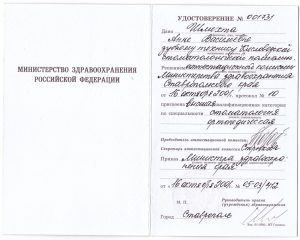 МИНИСТЕРСТВО ЗДРАВООХРАНЕНИЯ
РОССИЙСКОЙ ФЕДЕРАЦИИ
УДОСТОВЕРЕНИЕ № 001731
Дано
Анне
зубному технику
стоматологической поликлиники
аттестационной комиссией
Министерства здравоохранения
Ставропольского края
от 16 октября 2001. протокол № 10
присвоена высшая квалификационная категория
по специальности стоматология
ортопедическая
Председатель аттестационной комиссии
Секретарь аттестационной комиссии
Приказ Министра здравоохра-
нения края
от 16 октября 2001. № 05-03/412
М. П.
Руководитель органа
управления здравоохранения
Город Ставрополь